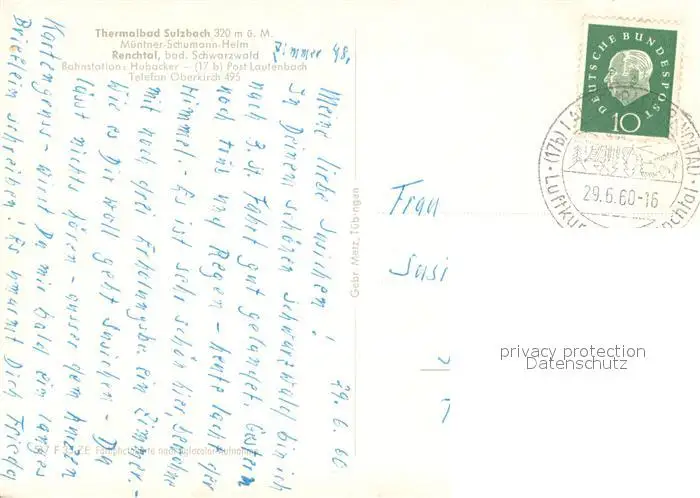 Thermalbad Sulzbach 320 m ü. M.
Müntner-Schumann-Heim
Renchtal, bad. Schwarzwald
Bahnstation: Hubacker – (17 b) Post Lautenbach
Telefon Oberkirch 495
Zimmer 48.
29.6.60
Meine liebe Susichen!
In Deinem schönen Schwarzwald bin ich
nach 3 St. Fahrt gut gelangt. Gestern
noch trüb und Regen – heute lacht der
Himmel. – Es ist sehr schön hier, bewohne
mit noch drei Erholungsbe. ein Zimmer. –
Wie es Dir wohl geht Susichen – Du
lässt nichts hören – ausser dem kurzen
Kartengruss – wirst Du mir bald ein langes
Brieflein schreiben! Es umarmt Dich Frieda
Gebr. Metz, Tübingen
Frau
Susi
DEUTSCHE BUNDESPOST
10
(17b)
29.6.60-16
Luftkur
privacy protection
Datenschutz